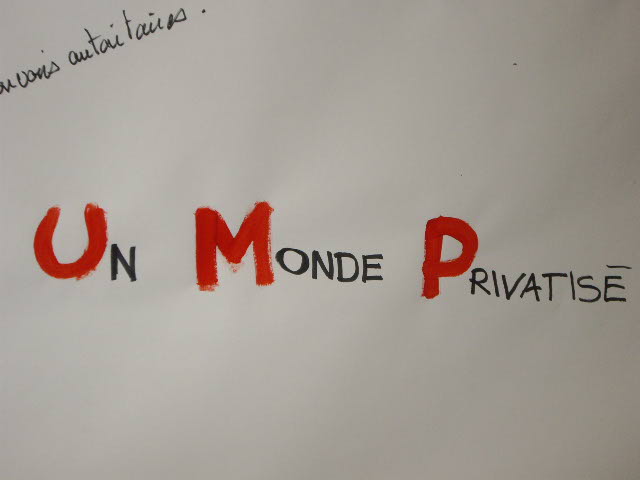 autoritaires.
UN MONDE PRIVATISÉ